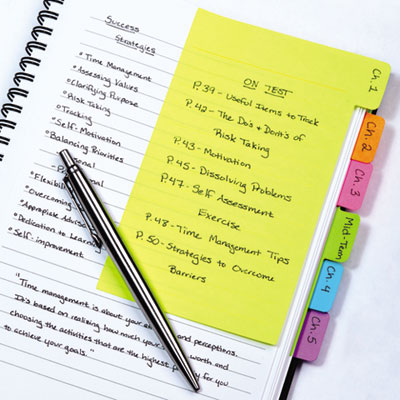 Success
Strategies
Time Management
Assessing Values
Clarifying Purpose
Risk Taking
Tracking
Self-Motivation
Balancing Priorities
Flexibility
Overcoming
Appropiate Advise
Dedication to Learning
Self-improvement
"Time management is about your and perceptions.
It's based on realizing how much your worth and
choosing the activities that are the highest for you
to achieve your goals."
ON TEST
P.39 - Useful Items to Track
P.42 - The Do's & Dont's of
Risk Taking
P.43 - Motivation
P.45 - Dissolving Problems
P.47 - Self Assessment
Exercise
P.48 - Time Management Tips
P.50 - Strategies to Overcome
Barriers
Ch. 1
Ch. 2
Ch. 3
Mid-Term
Ch. 4
Ch. 5